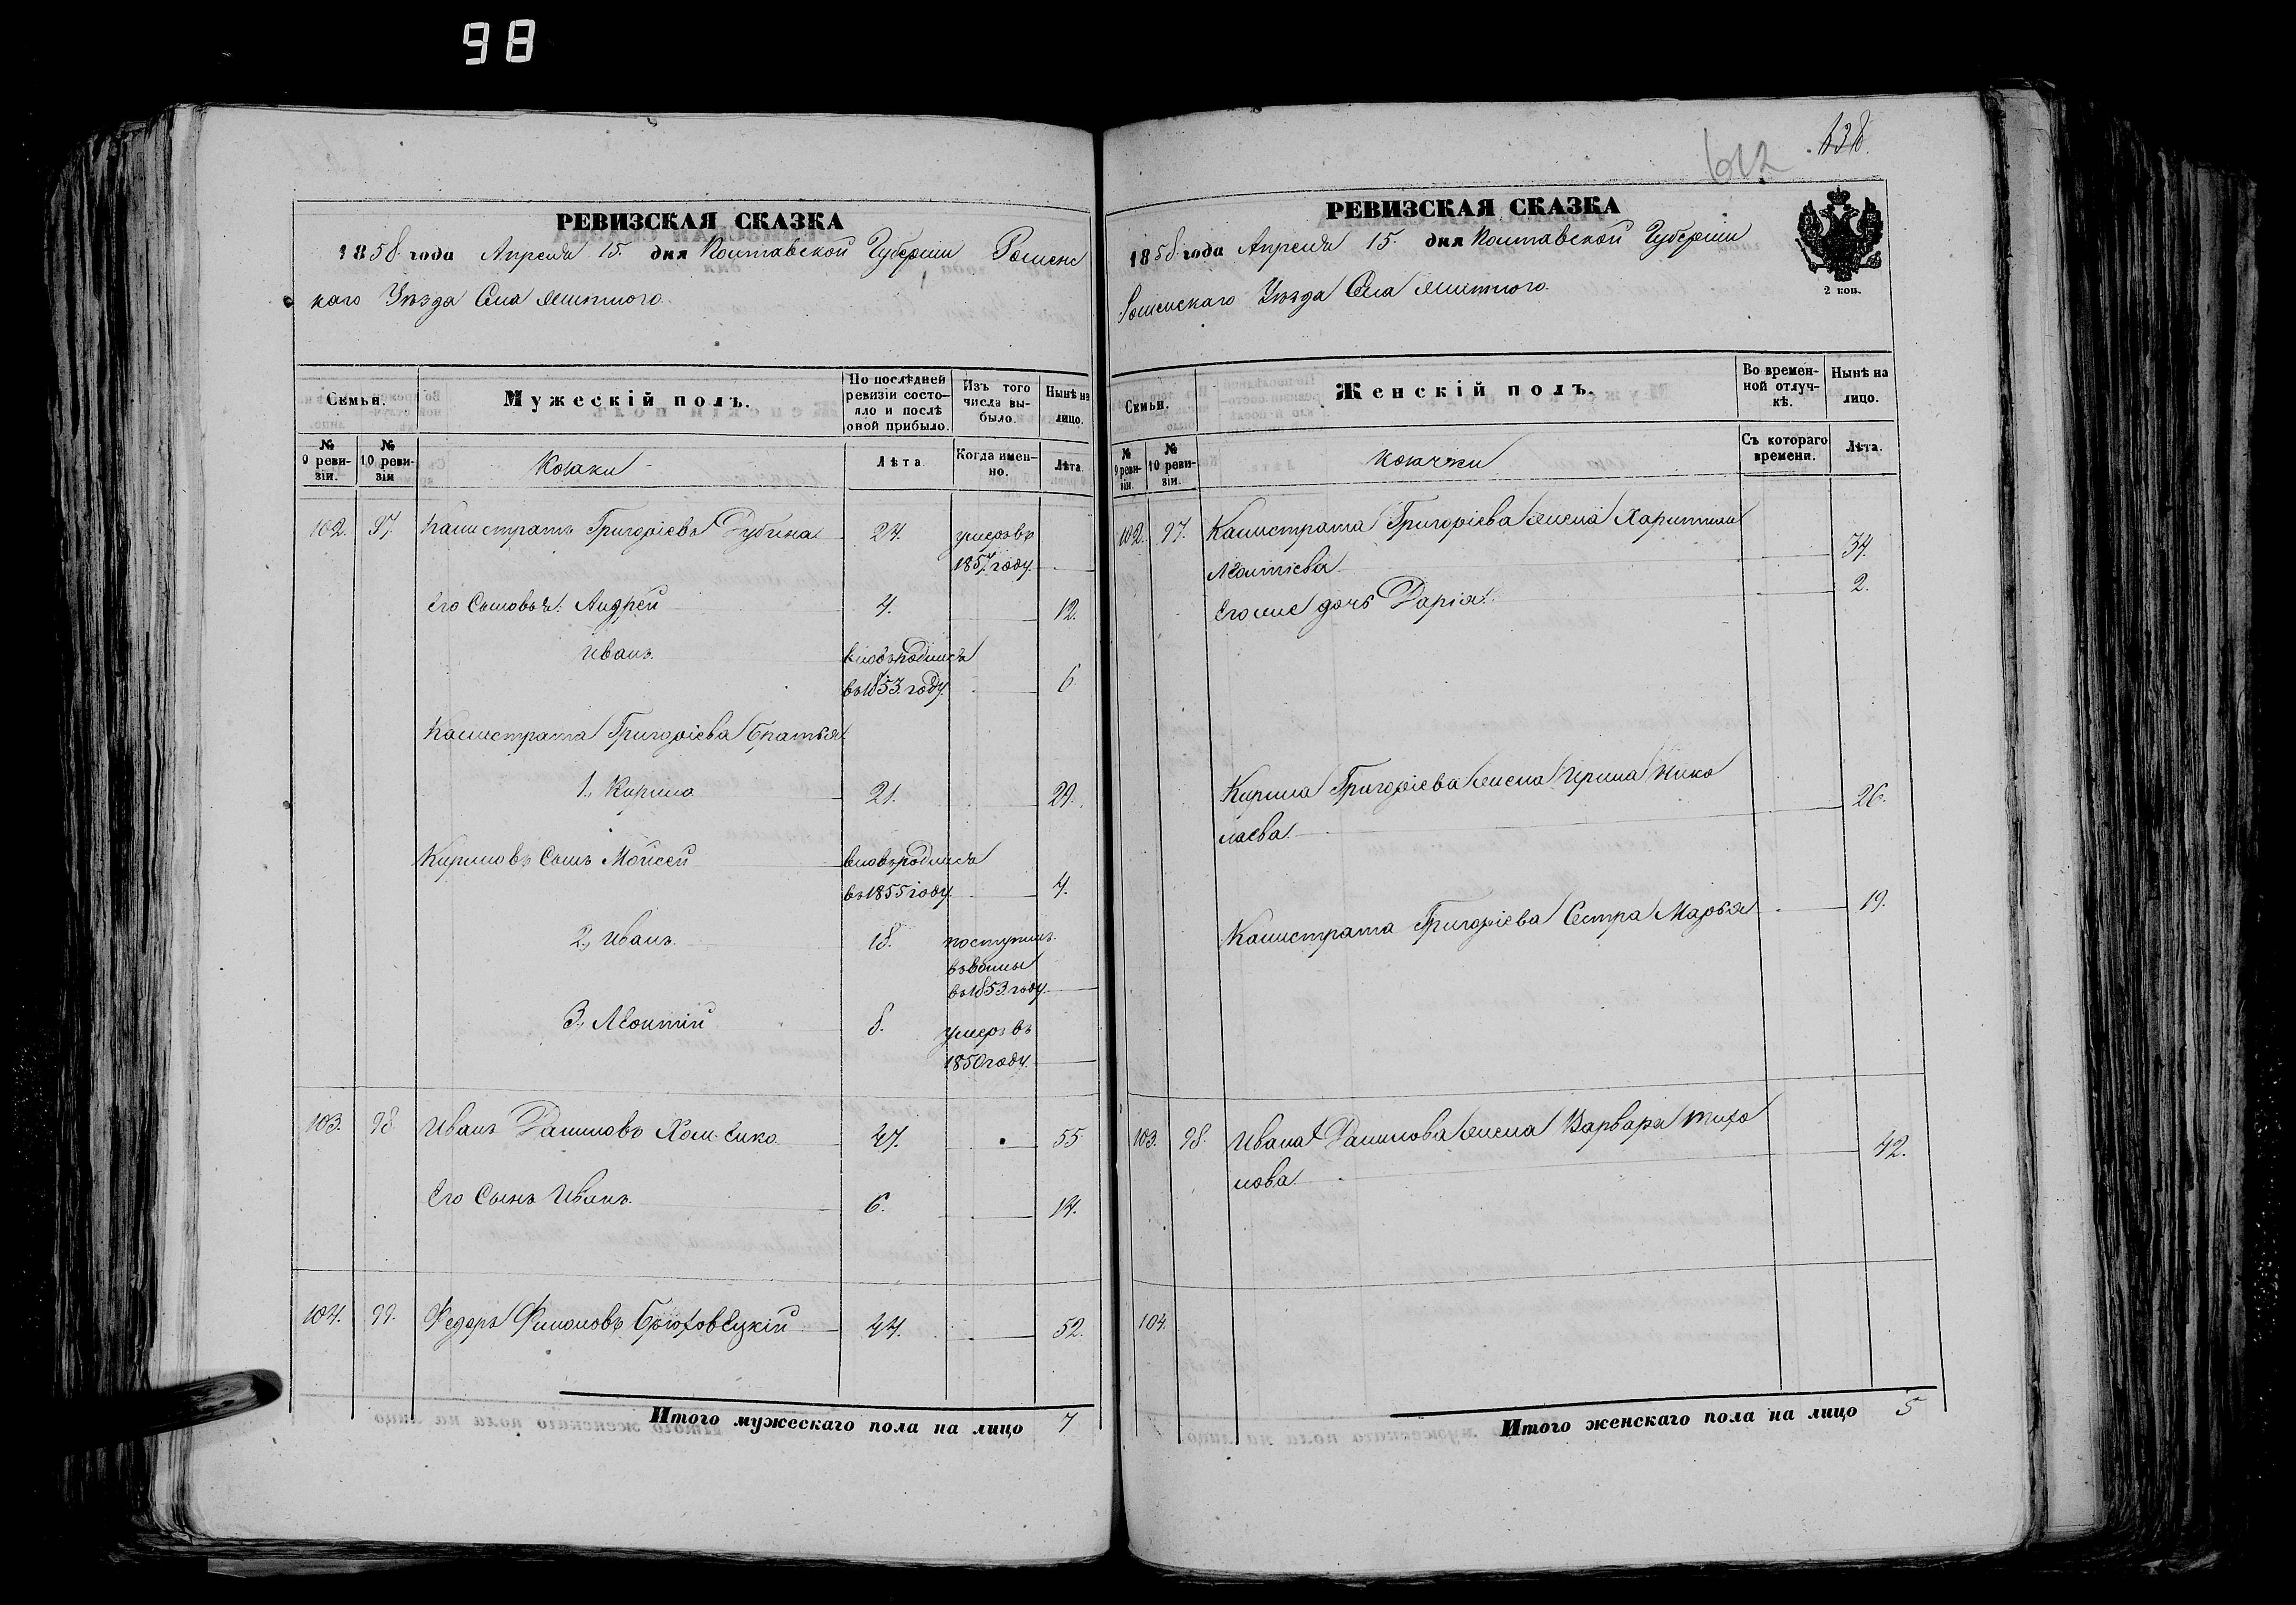 98
РЕВИЗСКАЯ СКАЗКА
1858 года Апреля 15. дня Полтавской Губерніи Роменс
каго Уѣзда Села
Семьи.
Мужескій полъ.
По послѣдней ревизіи состояло и послѣ оной прибыло.
Изъ того числа выбыло.
Нынѣ на лицо.
№ 9 ревизіи.
№ 10 ревизіи
Козаки
Лѣта.
Когда именно.
Лѣта.
102. 97. Калистратъ Григоріевъ Дубина 24. умеръ въ
1857 году.
Его Сыновья: Андрей 4. 12.
Иванъ. вновь родился
въ 1853. году. 6.
Калистрата Григоріева братья
1., Кирило 21. 29.
Кириловъ Сынъ Мойсей вновь родился
въ 1855 году. 4.
2., Иванъ. 18. поступилъ
въ 1853. году.
3., Леонтій 8. умеръ въ
1850 году.
103. 98 Иванъ Даниловъ 47. 55
Его Сынъ Иванъ. 6. 14.
104. 99. Федоръ Филоновъ Брюховецкій 44. 52.
Итого мужескаго пола на лицо 7
612 638.
РЕВИЗСКАЯ СКАЗКА
1858. года Апреля 15. дня Полтавской Губерніи
Роменскаго Уѣзда Села
2 коп.
Семьи.
Женскій полъ.
Во временной отлучкѣ.
Нынѣ на лицо.
№ 9 ревизіи.
№ 10 ревизіи.
Козачки
Съ котораго времени.
Лѣта.
102. 97. Калистрата Григоріева жена Харитина
Леонтіева. 34.
Его же дочь Дарія. 2.
Кирила Григоріева жена Ирина Нико
лаева. 26.
Калистрата Григоріева Сестра Марья 19.
103. 98. Ивана Данилова жена Варвара Тихо
нова. 42.
104.
Итого женскаго пола на лицо 5